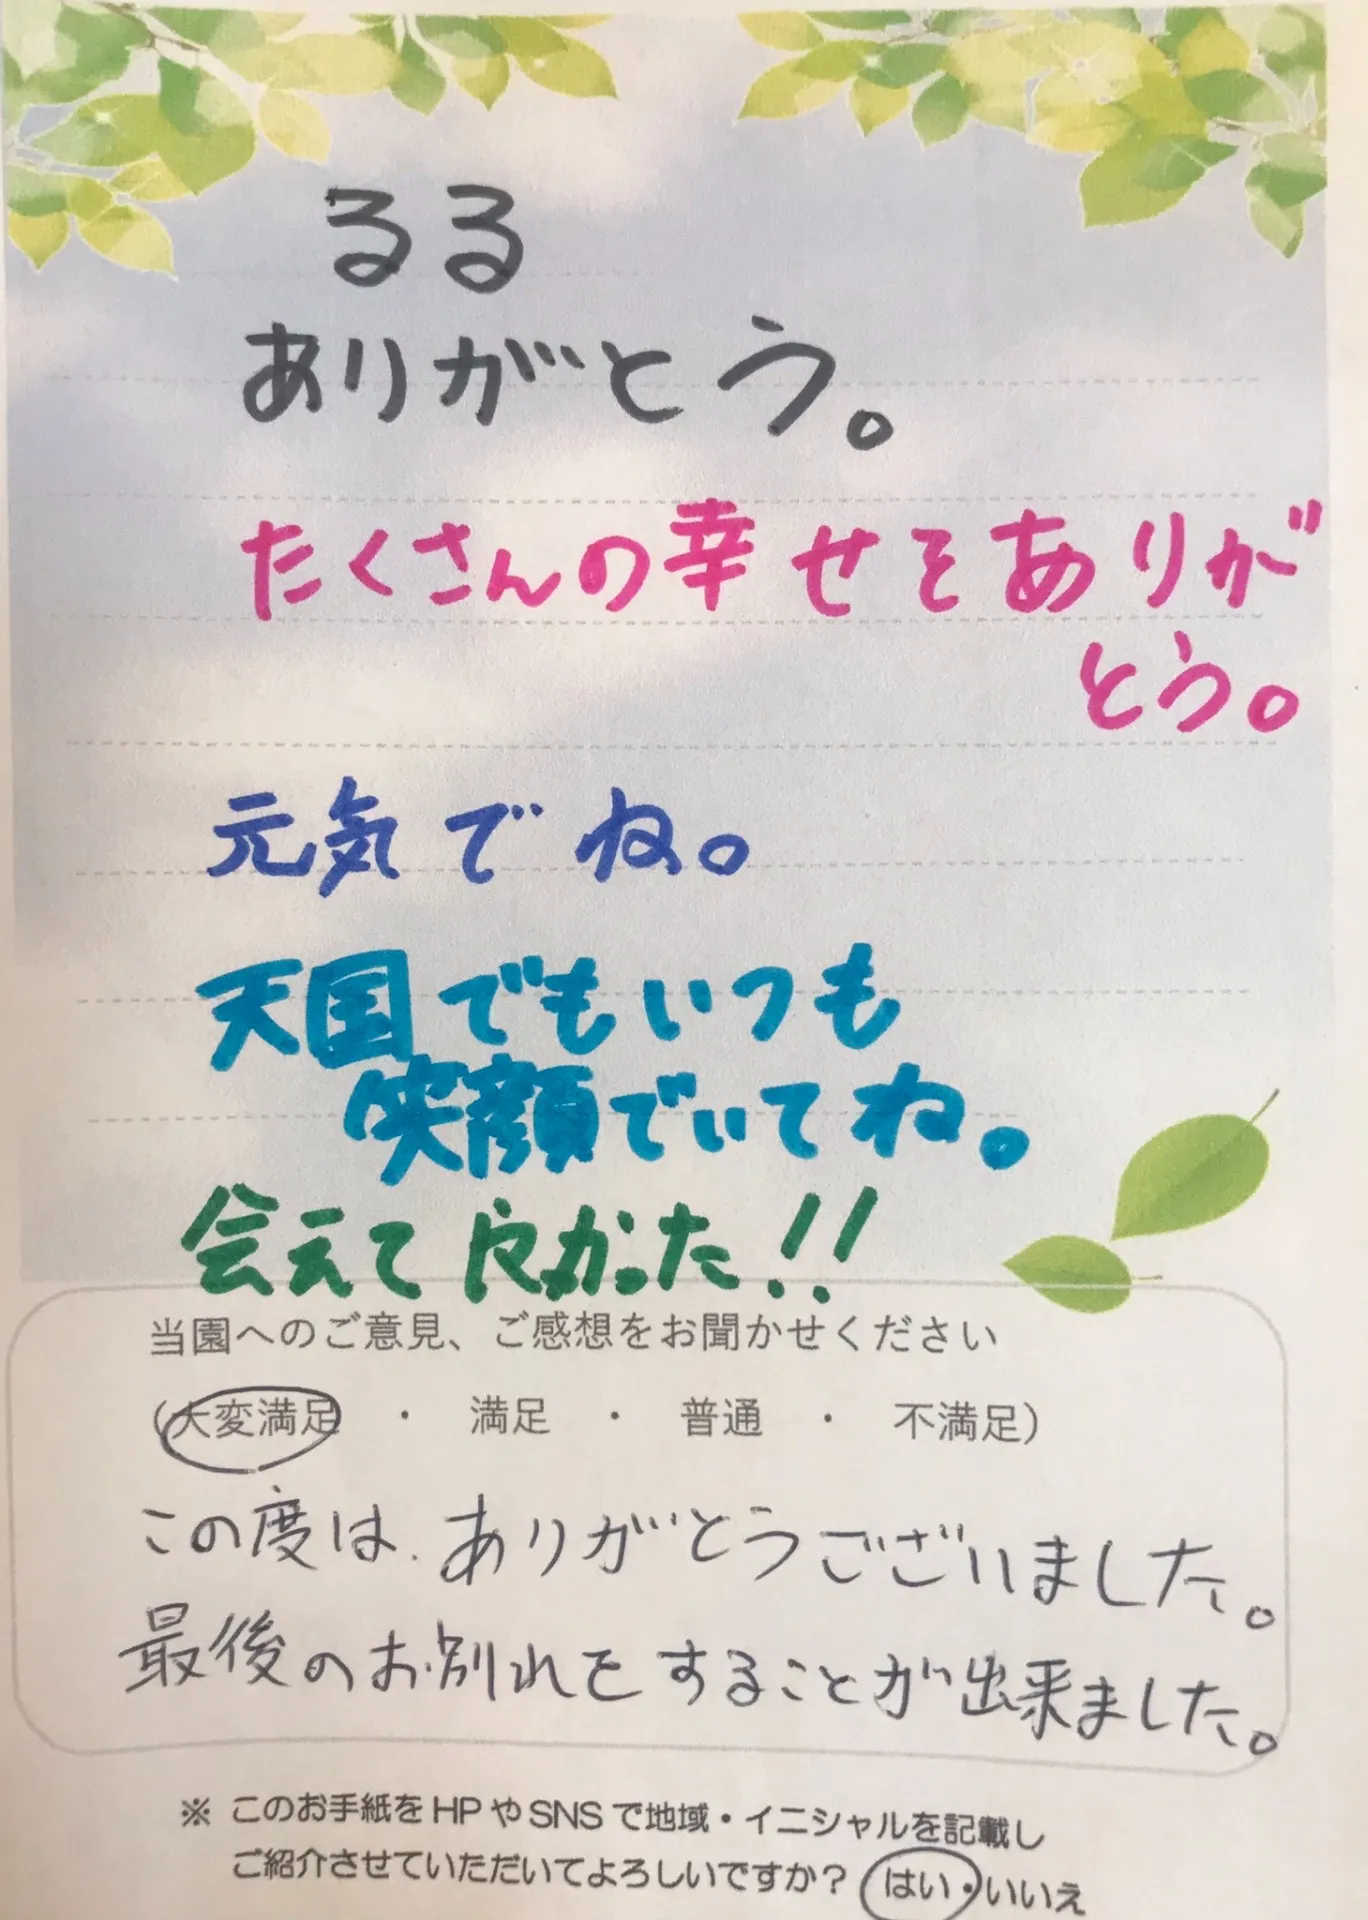 るる
ありがとう。
たくさんの幸せをありが
とう。
元気でね。
天国でもいつも
笑顔でいてね。
会えて良かった!!
当園へのご意見、ご感想をお聞かせください
(大変満足 ・ 満足 ・ 普通 ・ 不満足)
この度は、ありがとうございました。
最後のお別れをすることが出来ました。
※ このお手紙をHPやSNSで地域・イニシャルを記載し
ご紹介させていただいてよろしいですか? はい・いいえ